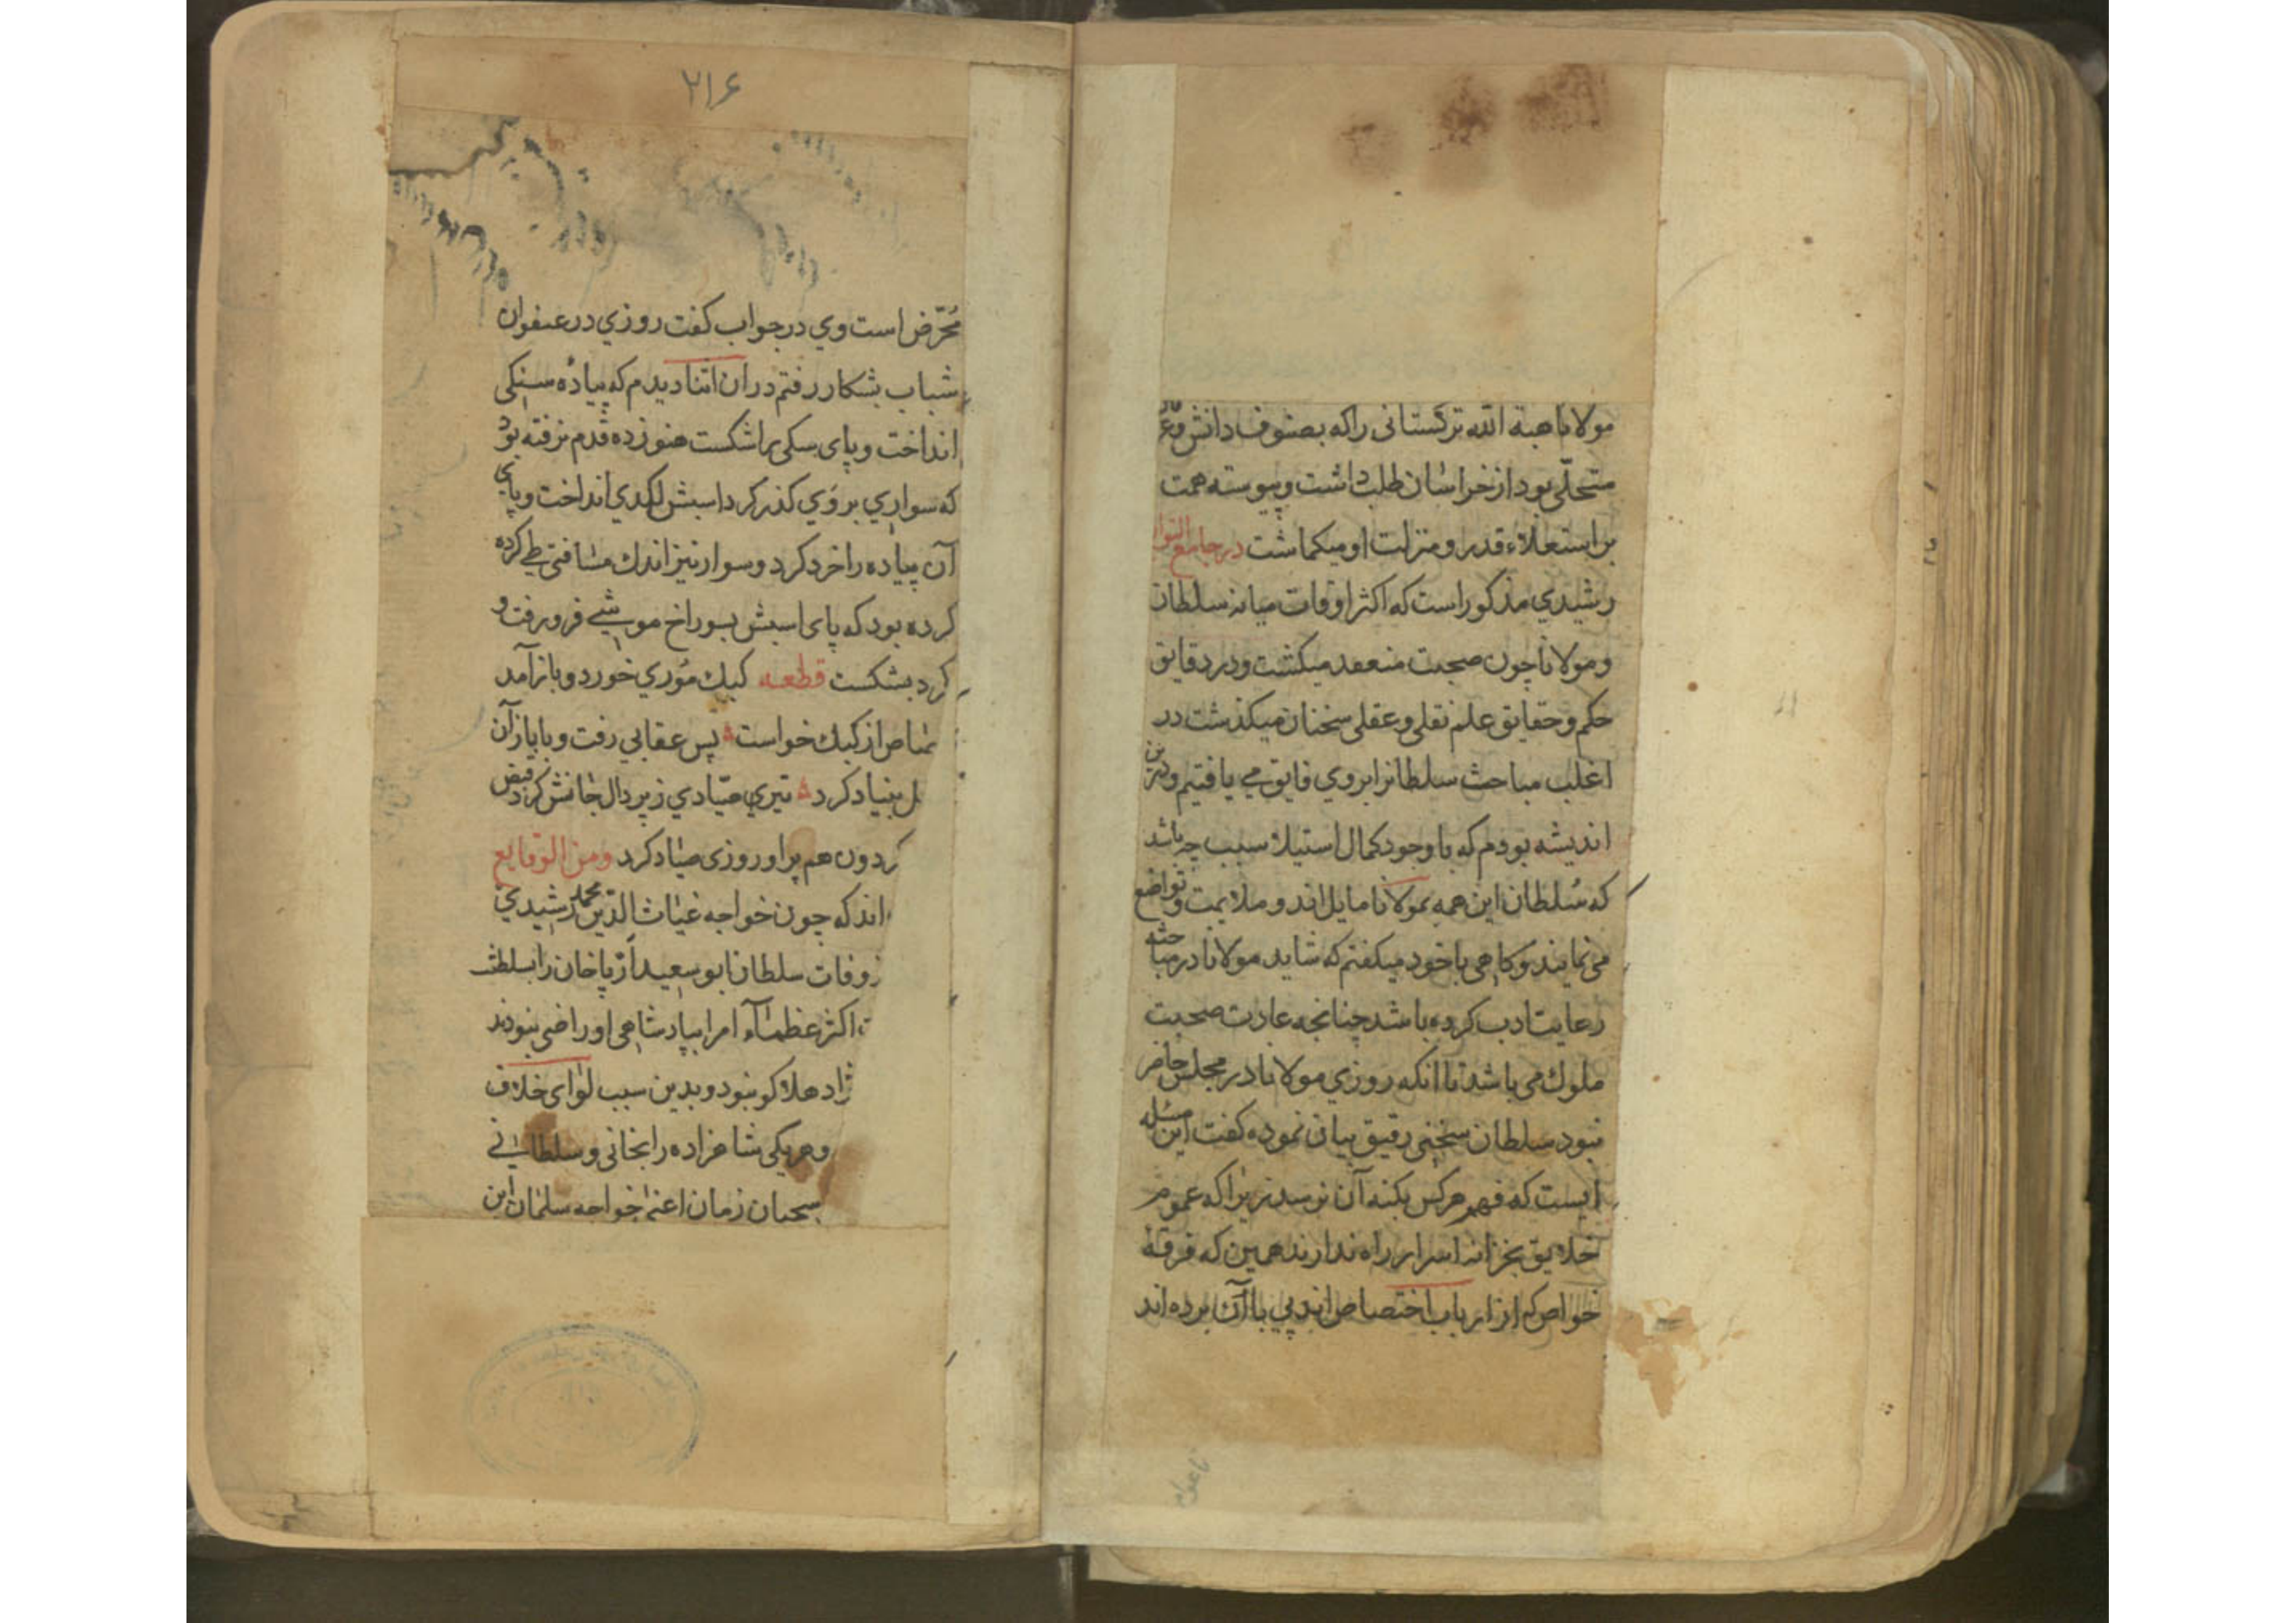 مولانا هبة الله ترکستانی راکه بصنوف دانش و
متحلّی بود از خراسان طلب داشت و پیوسته همت
بر استعلاء قدر و منزلت او میکماشت در جامع التوار
رشیدي مذکور است که اکثر اوقات میانه سلطان
و مولانا چون صحبت منعقد میکشت و در دقایق
حکم و حقایق علم نقلی و عقلی سخنان میکذشت در
اغلب مباحث سلطانرا بروي فایق می یافتیم و درین
اندیشه بودم که با وجود کمال استیلا سبب چه باشد
که سُلطان این همه بمولانا مایل اند و ملایمت و تواضع
می نمایند و کاهی با خود میکفتم که شاید مولانا در مباحثه
رعایت ادب کرده باشد چنانجه عادت صحبت
ملوك می باشد تا انکه روزي مولانا در مجلس حاضر
نبود سلطان سخنی رقیق بیان نموده کفت این مسله
ایست که فهم هرکس بکنه آن نرسد زیرا که عموم
خلایق بخزانه اسرار راه ندارند همین که فرقهٔ
خواص که از ارباب اختصاص اند پی با آن برده اند
۲۱۶
مُحرّض است وي در جواب کفت روزي در عنفوان
شباب بشکار رفتم در ان اثنا دیدم که پیادهٔ سنکی
انداخت و پای سکی را شکست هنوز ده قدم نرفته بود
که سواري بر وَي کذر کرد اسبش لکدي انداخت و پای
آن پیاده را خرد کرد و سوار نیز اندك مسافتی طی کرده
کرده بود که پای اسبش بسوراخ موشی فرو رفت و
کرد بشکست قطعه کبك مُوري خورد و باز آمد
قصاص از کبك خواست پس عقابي رفت و با باز آن
ل بنیاد کرد تیري صیّادي زیر دال جانش کرد قبض
کردون هم بر او روزی صیاد کرد ومن الوقایع
اند که چون خواجه غیاث الدّین محمد رشیدي
ز وفات سلطان ابو سعید اَرْپا خان را بسلطنت
ت اکثر عظماء امرا بپادشاهی او راضی نبودند
ژاد هلاکو نبود و بدین سبب لوای خلاف
و هر یکی شاهزاده را بخانی و سلطانی
سحبان زمان اعنی خواجه سلمان این